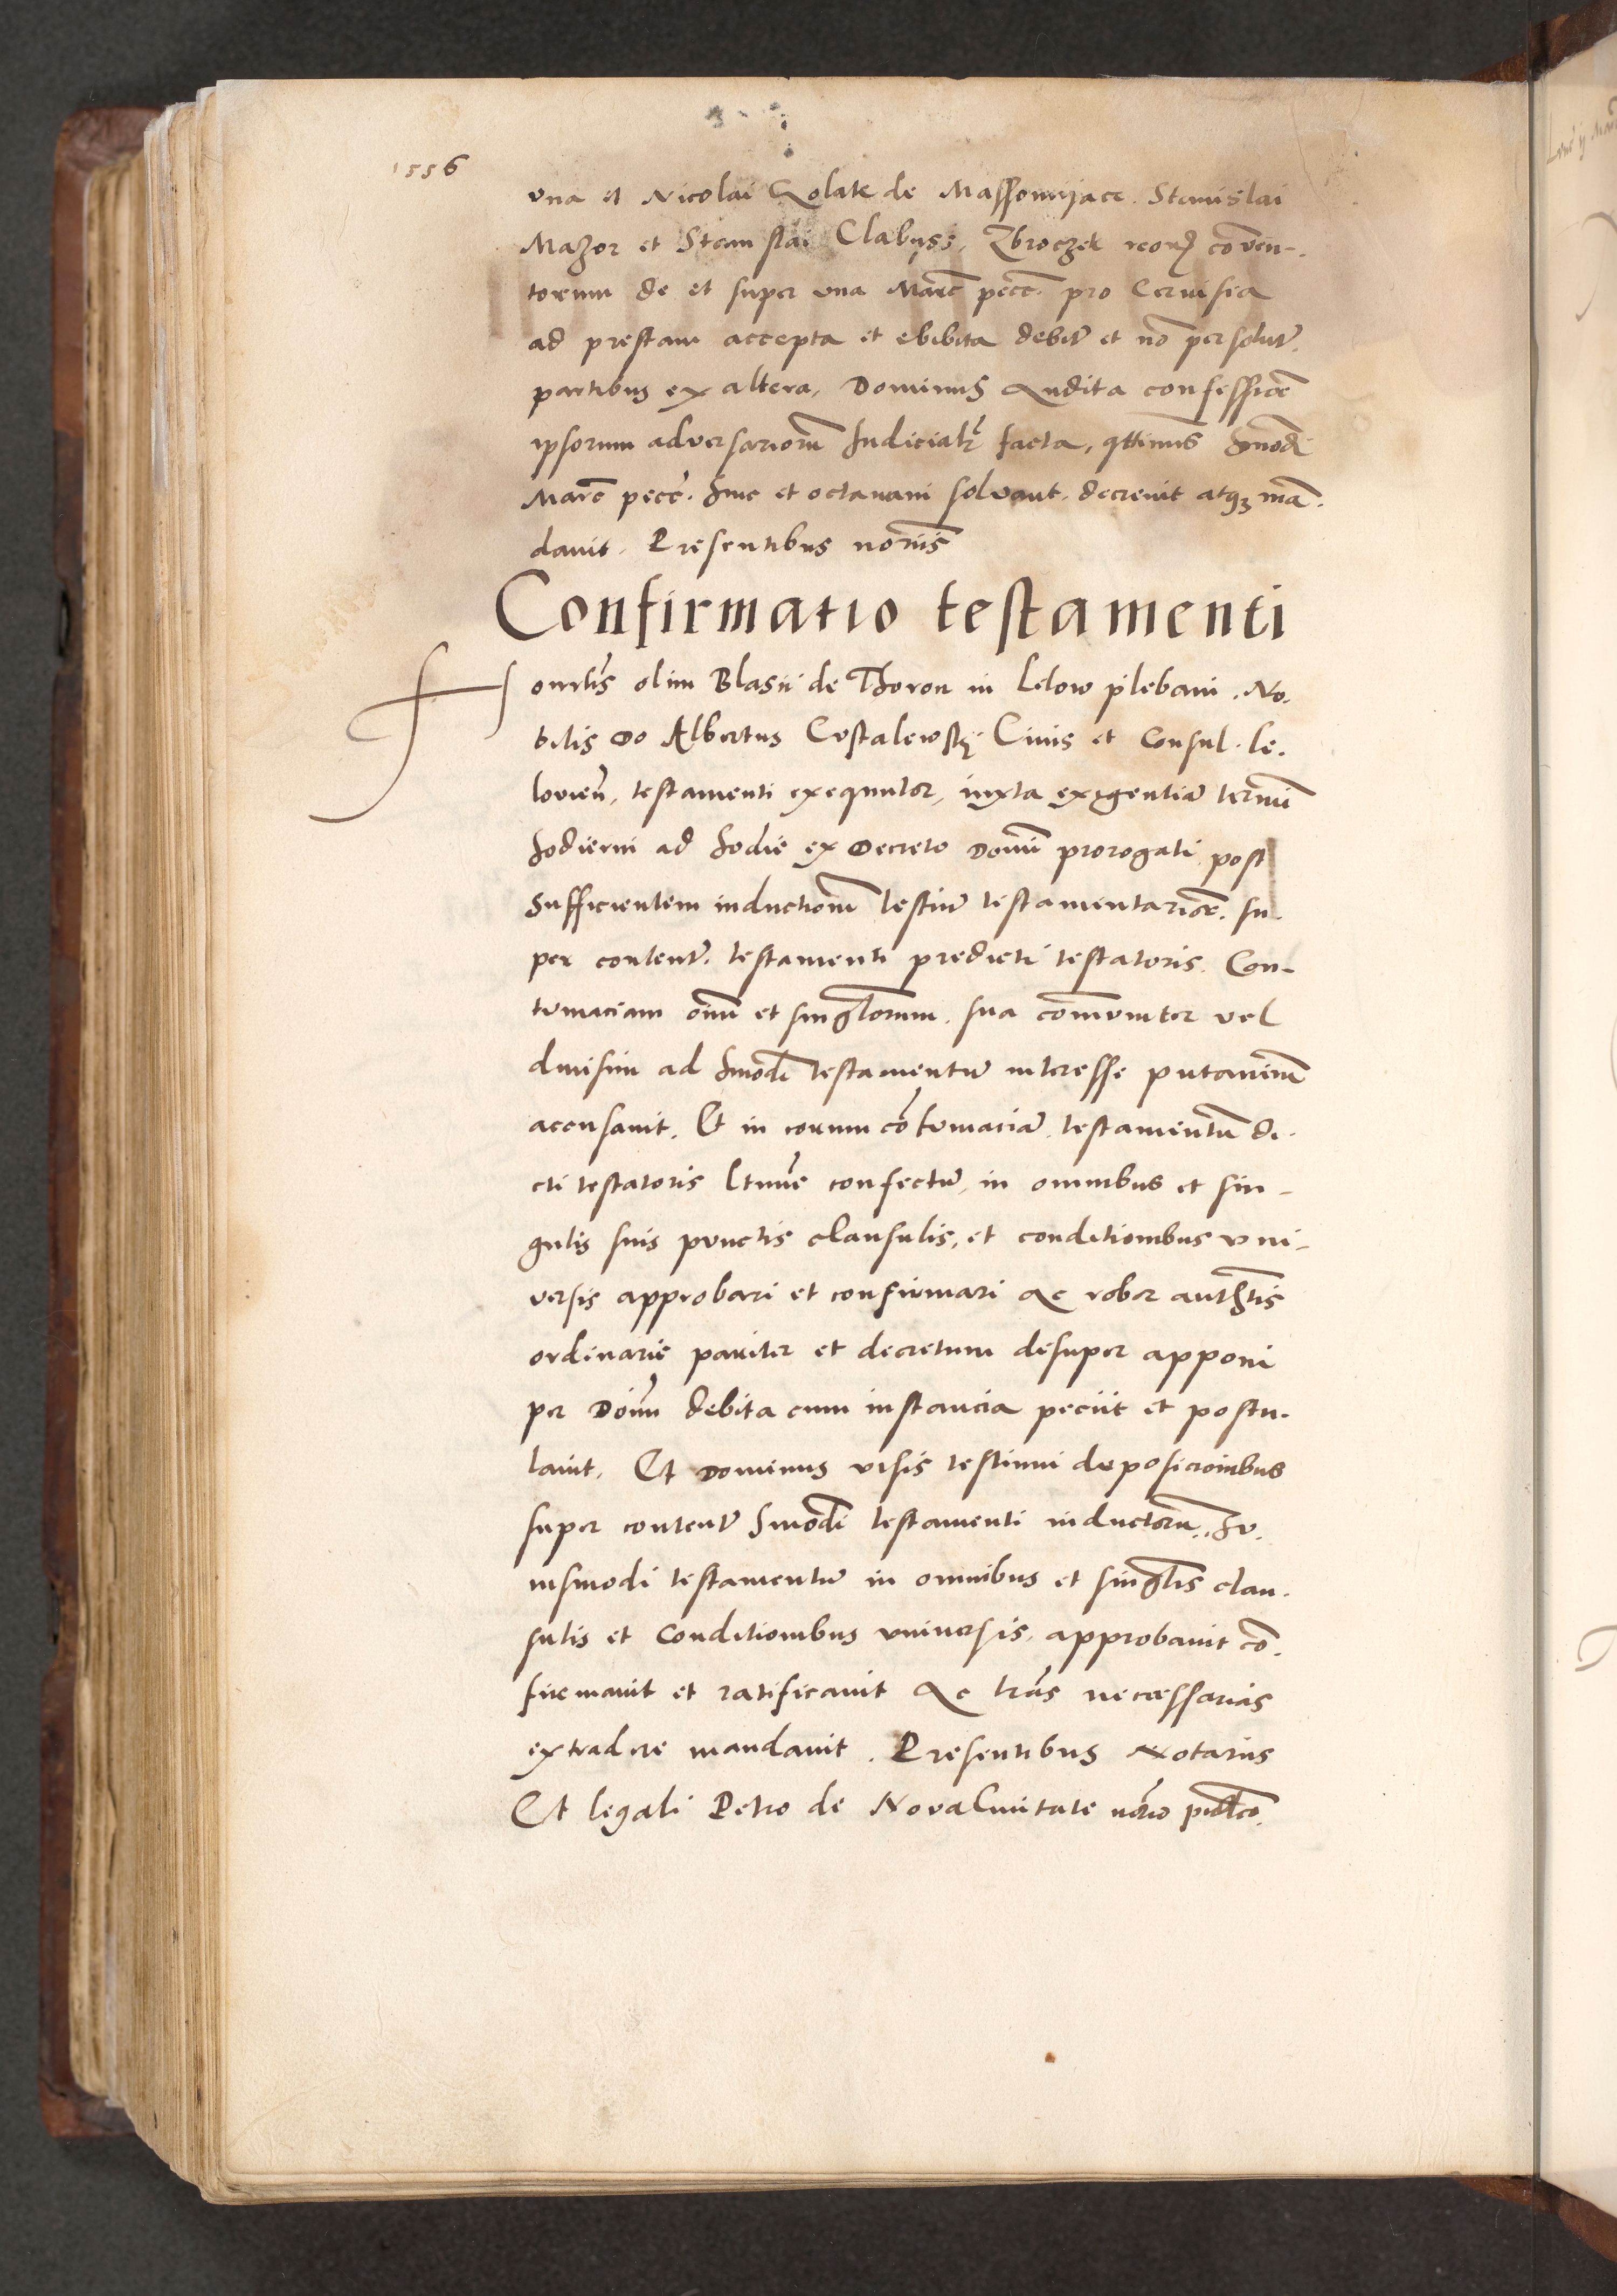 1556
vna et Nicolai Golak de Massomyace. Stanislai
Mazor et Stanislai Clabyss, Zbroczek reoru conven-
torum de et super una Marc pecc pro Cervisia
ad prestam accepta et ebibita debit et no persolut,
partibus ex altera, Dominus Audita confessioe
ipsorum adversariorum Judicialr facta, qttinus hmodi
Marc pecc. hinc et octavam solvant. decrevit atqz ma-
davit. Presentibus notriis
Confirmatio testamenti
Honrlis olim Blasii de Thoron in Lelow plebani. No-
bilis do Albertus Costalewsky Civis et Consul. le-
lovien, testamenti exequutor, iuxta exigentiam termi
hodierni ad hodie ex Decreto Domi prorogati post
sufficientem inductionem testium testamentarioru. su-
per content. testamenti predicti testatoris. Con-
tumaciam omium et singlorum. sua communiter vel
divisim ad hmodi testamentum interesse putantium
accusavit. Et in eorum contumaciam. testamentum di-
cti testatoris ltime confectum, in omnibus et sin-
gulis suis punctis clausulis, et conditionibus vni-
versis approbari et confirmari ac robor authtis
ordinarie pariter et decretum desuper apponi
per Domi debita cum instancia peciit et postu-
lavit. Et Dominus visis testium deposicionibus
super content hmodi testamenti inductoru. Hu-
iusmodi testamentum in omnibus et singlis clau-
sulis et Conditionibus universis. approbavit co-
firmavit et ratificavit Ac lras necessarias
extradere mandavit. Presentibus Notarius
Et legali Petro de Nova Civitate notrio publco.